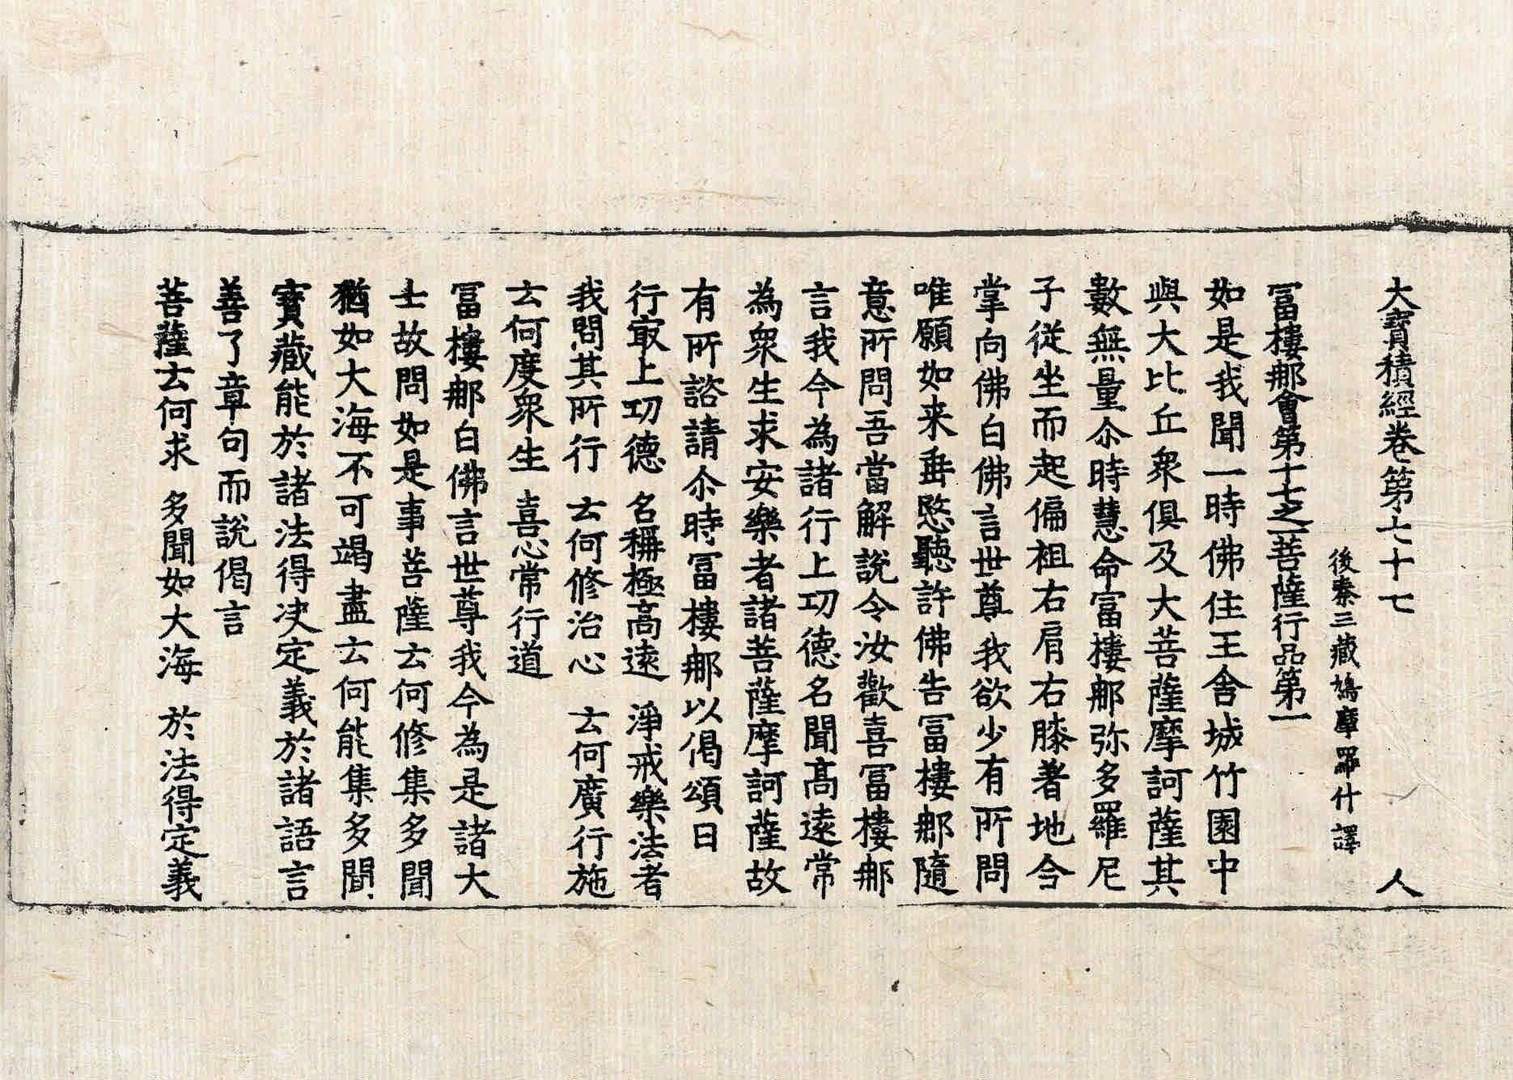 大寶積經卷第七十七 人
後秦三藏鳩摩羅什譯
冨樓那會第十七之一菩薩行品第一
如是我聞一時佛住王舍城竹園中
與大比丘衆俱及大菩薩摩訶薩其
數無量尒時慧命富樓那弥多羅尼
子從坐而起偏袒右肩右膝著地合
掌向佛白佛言世尊我欲少有所問
唯願如来垂愍聽許佛告冨樓那隨
意所問吾當解說令汝歡喜冨樓那
言我今為諸行上功德名聞高遠常
為衆生求安樂者諸菩薩摩訶薩故
有所諮請尒時冨樓那以偈頌曰
行冣上功德 名稱極高遠 淨戒樂法者
我問其所行 云何修治心 云何廣行施
云何度衆生 喜心常行道
冨樓那白佛言世尊我今為是諸大
士故問如是事菩薩云何修集多聞
猶如大海不可竭盡云何能集多聞
寶藏能於諸法得决定義於諸語言
善了章句而說偈言
菩薩云何求 多聞如大海 於法得定義